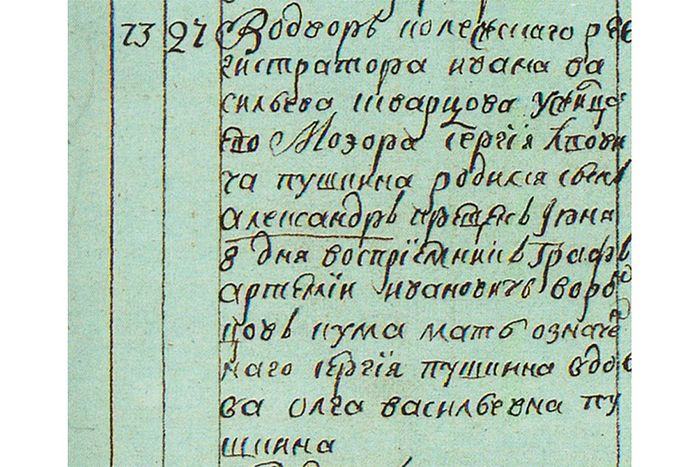 73 27 Водворѣ колежскаго рѣ
гистратора ивана ва
сильева шварцова у жилца
ево Моэора сергія лвови
ча пушкина родился сынъ
александръ крещенъ июня
8 дня воспріемникъ графъ
артемій ивановичъ ворон
цовъ кума мать означен
наго сергія пушкина вдов
ва олга васильевна пу
шкина